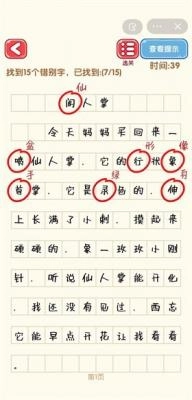 选关
查看提示
时间:39
找到15个错别字，已找到:(7/15)
仙
闲人掌
今天妈妈买回来一
盆 形 像
喷仙人掌．它的行状象
手 绿 有
首掌．它是录色的．伸
上长满了小刺．摸起来
硬硬的．象一玫玫小刚
针．听说仙人掌能开化
．我还没有见过．西忘
它能早点开花让我看看
。
第1页